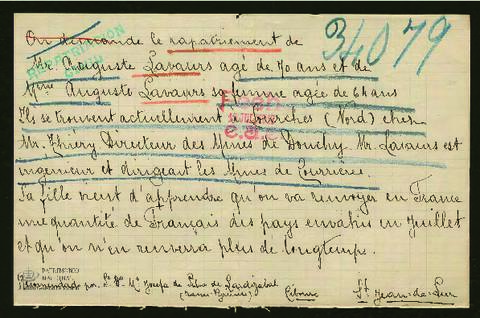 On demande le rapatriement de
Mr Auguste Lavaurs agé de 70 ans et de
Mme Auguste Lavaurs sa femme agée de 61 ans
Ils se trouvent actuellement Lourches (Nord) chez
Mr. Thiéry Directeur des Mines de Douchy. Mr. Lavaurs est
ingenieur et dirigeait les Mines de Courrières.
Sa fille vient d'apprendre qu'on va renvoyer en France
une quantité de Français des pays envahis en Juillet
et qu'on n'en renverra plus de longtemps.
Recomendado por S. Da Ma Josefa de
Ciboure
St Jean-de-Luz
34079
PATRIMONIO
NACIONAL